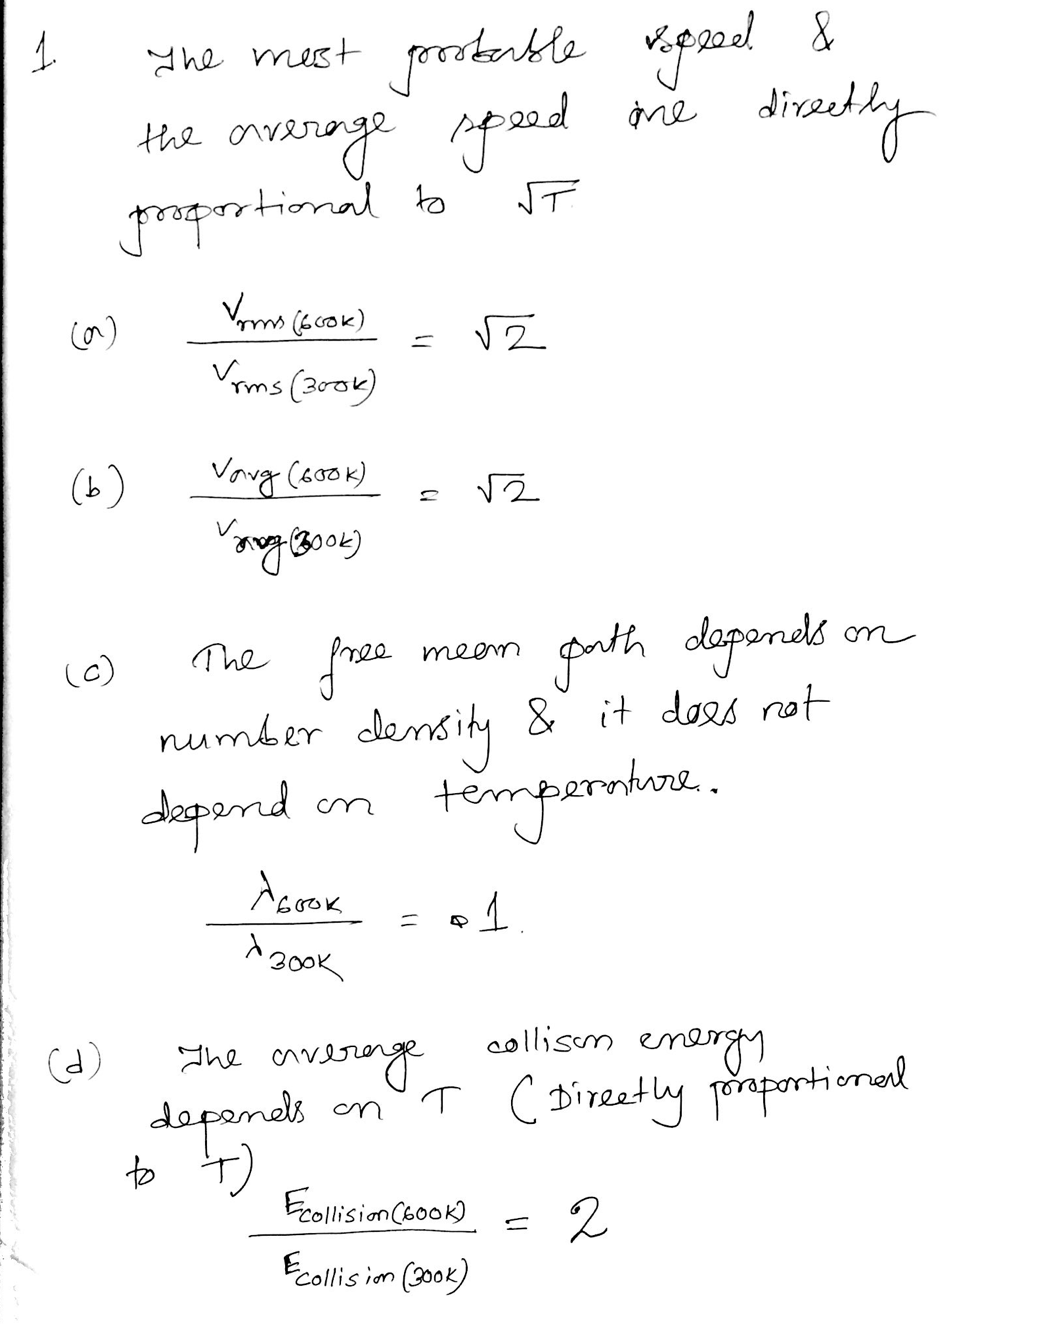 1. The most probable speed &
the average speed are directly
proportional to √T.
(a) Vrms (600K) / Vrms (300K) = √2
(b) Vavg (600K) / Vavg (300K) = √2
(c) The free mean path depends on
number density & it does not
depend on temperature.
λ600K / λ300K = 1.
(d) The average collison energy
depends on T (Directly proportional
to T)
Ecollision (600K) / Ecollision (300K) = 2